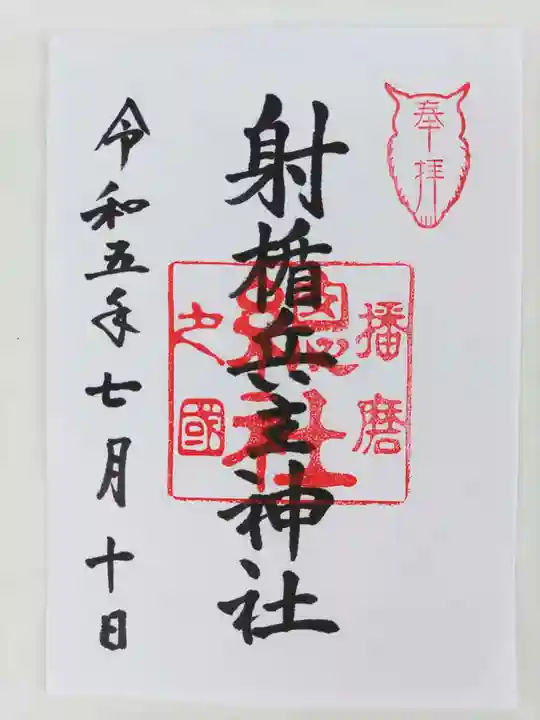 奉拝
播磨
総社
之國
射楯兵主神社
令和五年七月十日